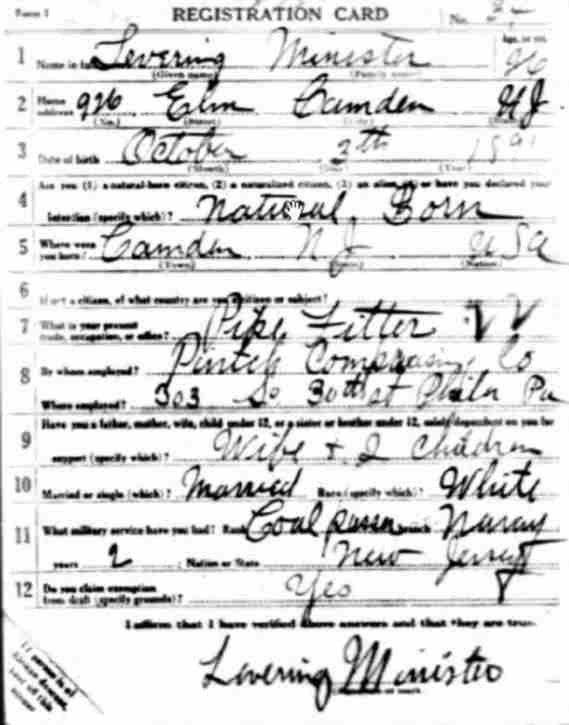 Form 1 REGISTRATION CARD No.
1 Name in full Levering Minister Age, in yrs.
(Given name) (Family name)
2 Home address 926 Elm Camden NJ
(No.) (Street) (City) (State)
3 Date of birth October 3th 1891
(Month) (Day) (Year)
4 Are you (1) a natural-born citizen, (2) a naturalized citizen, (3) an alien, (4) or have you declared your
intention (specify which)? Natural Born
5 Where were you born? Camden NJ USA
(Town) (State) (Nation)
6 If not a citizen, of what country are you a citizen or subject?
7 What is your present trade, occupation, or office? Pipe Fitter
8 By whom employed? Co
Where employed? 303 So 30th st Phila Pa
9 Have you a father, mother, wife, child under 12, or a sister or brother under 12, solely dependent on you for
support (specify which)? Wife + 2 Children
10 Married or single (which)? Married Race (specify which)? White
11 What military service have you had? Rank Coal passer branch Navay
years 2 ; Nation or State New Jersey
12 Do you claim exemption from draft (specify grounds)? Yes
I affirm that I have verified above answers and that they are true.
Levering Minister